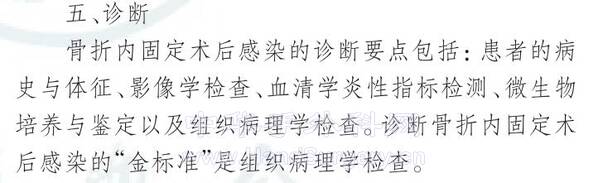 五、诊断
骨折内固定术后感染的诊断要点包括：患者的病
史与体征、影像学检查、血清学炎性指标检测、微生物
培养与鉴定以及组织病理学检查。诊断骨折内固定术
后感染的“金标准”是组织病理学检查。